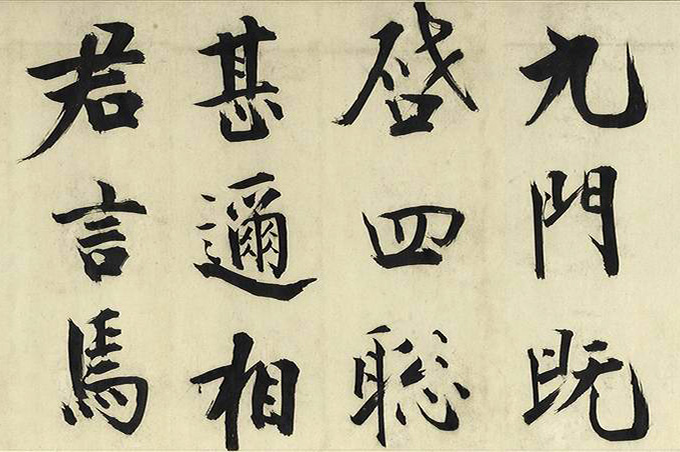 九門既
啓四聡
甚邇相
君言焉